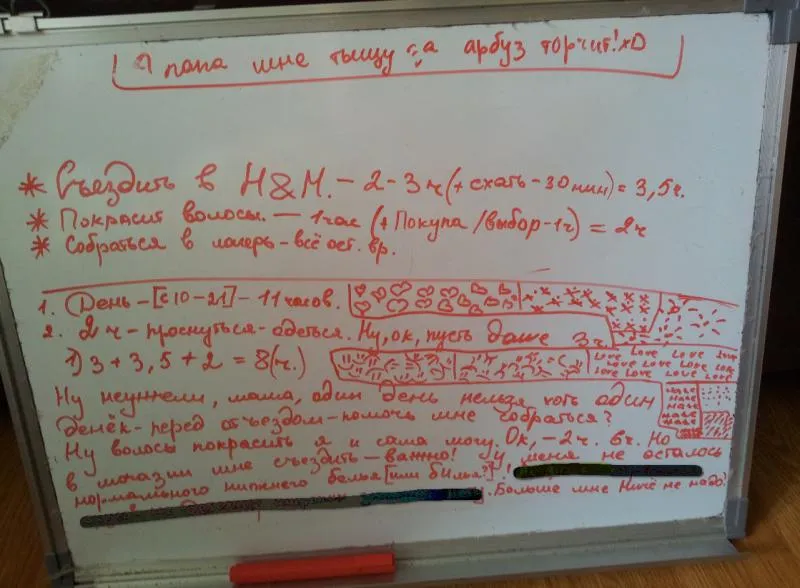 Я папа мне тыщу за арбуз торчит! xD
* Съездить в H&M. – 2 – 3 ч (+ ехать – 30 мин) = 3,5 ч.
* Покрасит волосы. — 1 час (+ Покупа / выбор – 1 ч) = 2 ч
* Собраться в лагерь – всё ост. вр.
1. День – [с 10 – 21] – 11 часов.
2. 2 ч – проснуться – одеться. Ну, ок, пусть даже 3 ч.
1) 3 + 3,5 + 2 = 8 (ч.)
Love Love Love Love
Love Love Love Love
Love Love Love Love
Hate
Hate
Hate
Hate
Ну неужели, мама, один день нельзя, хоть один
денёк – перед отъездом – помочь мне собраться?
Ну волосы покрасить я и сама могу. Ок, – 2 ч. 6 ч. Но
в магазин мне съездить – важно! У меня не осталось
нормального нижнего белья [или билья?]!
. Больше мне Ничё не надо!